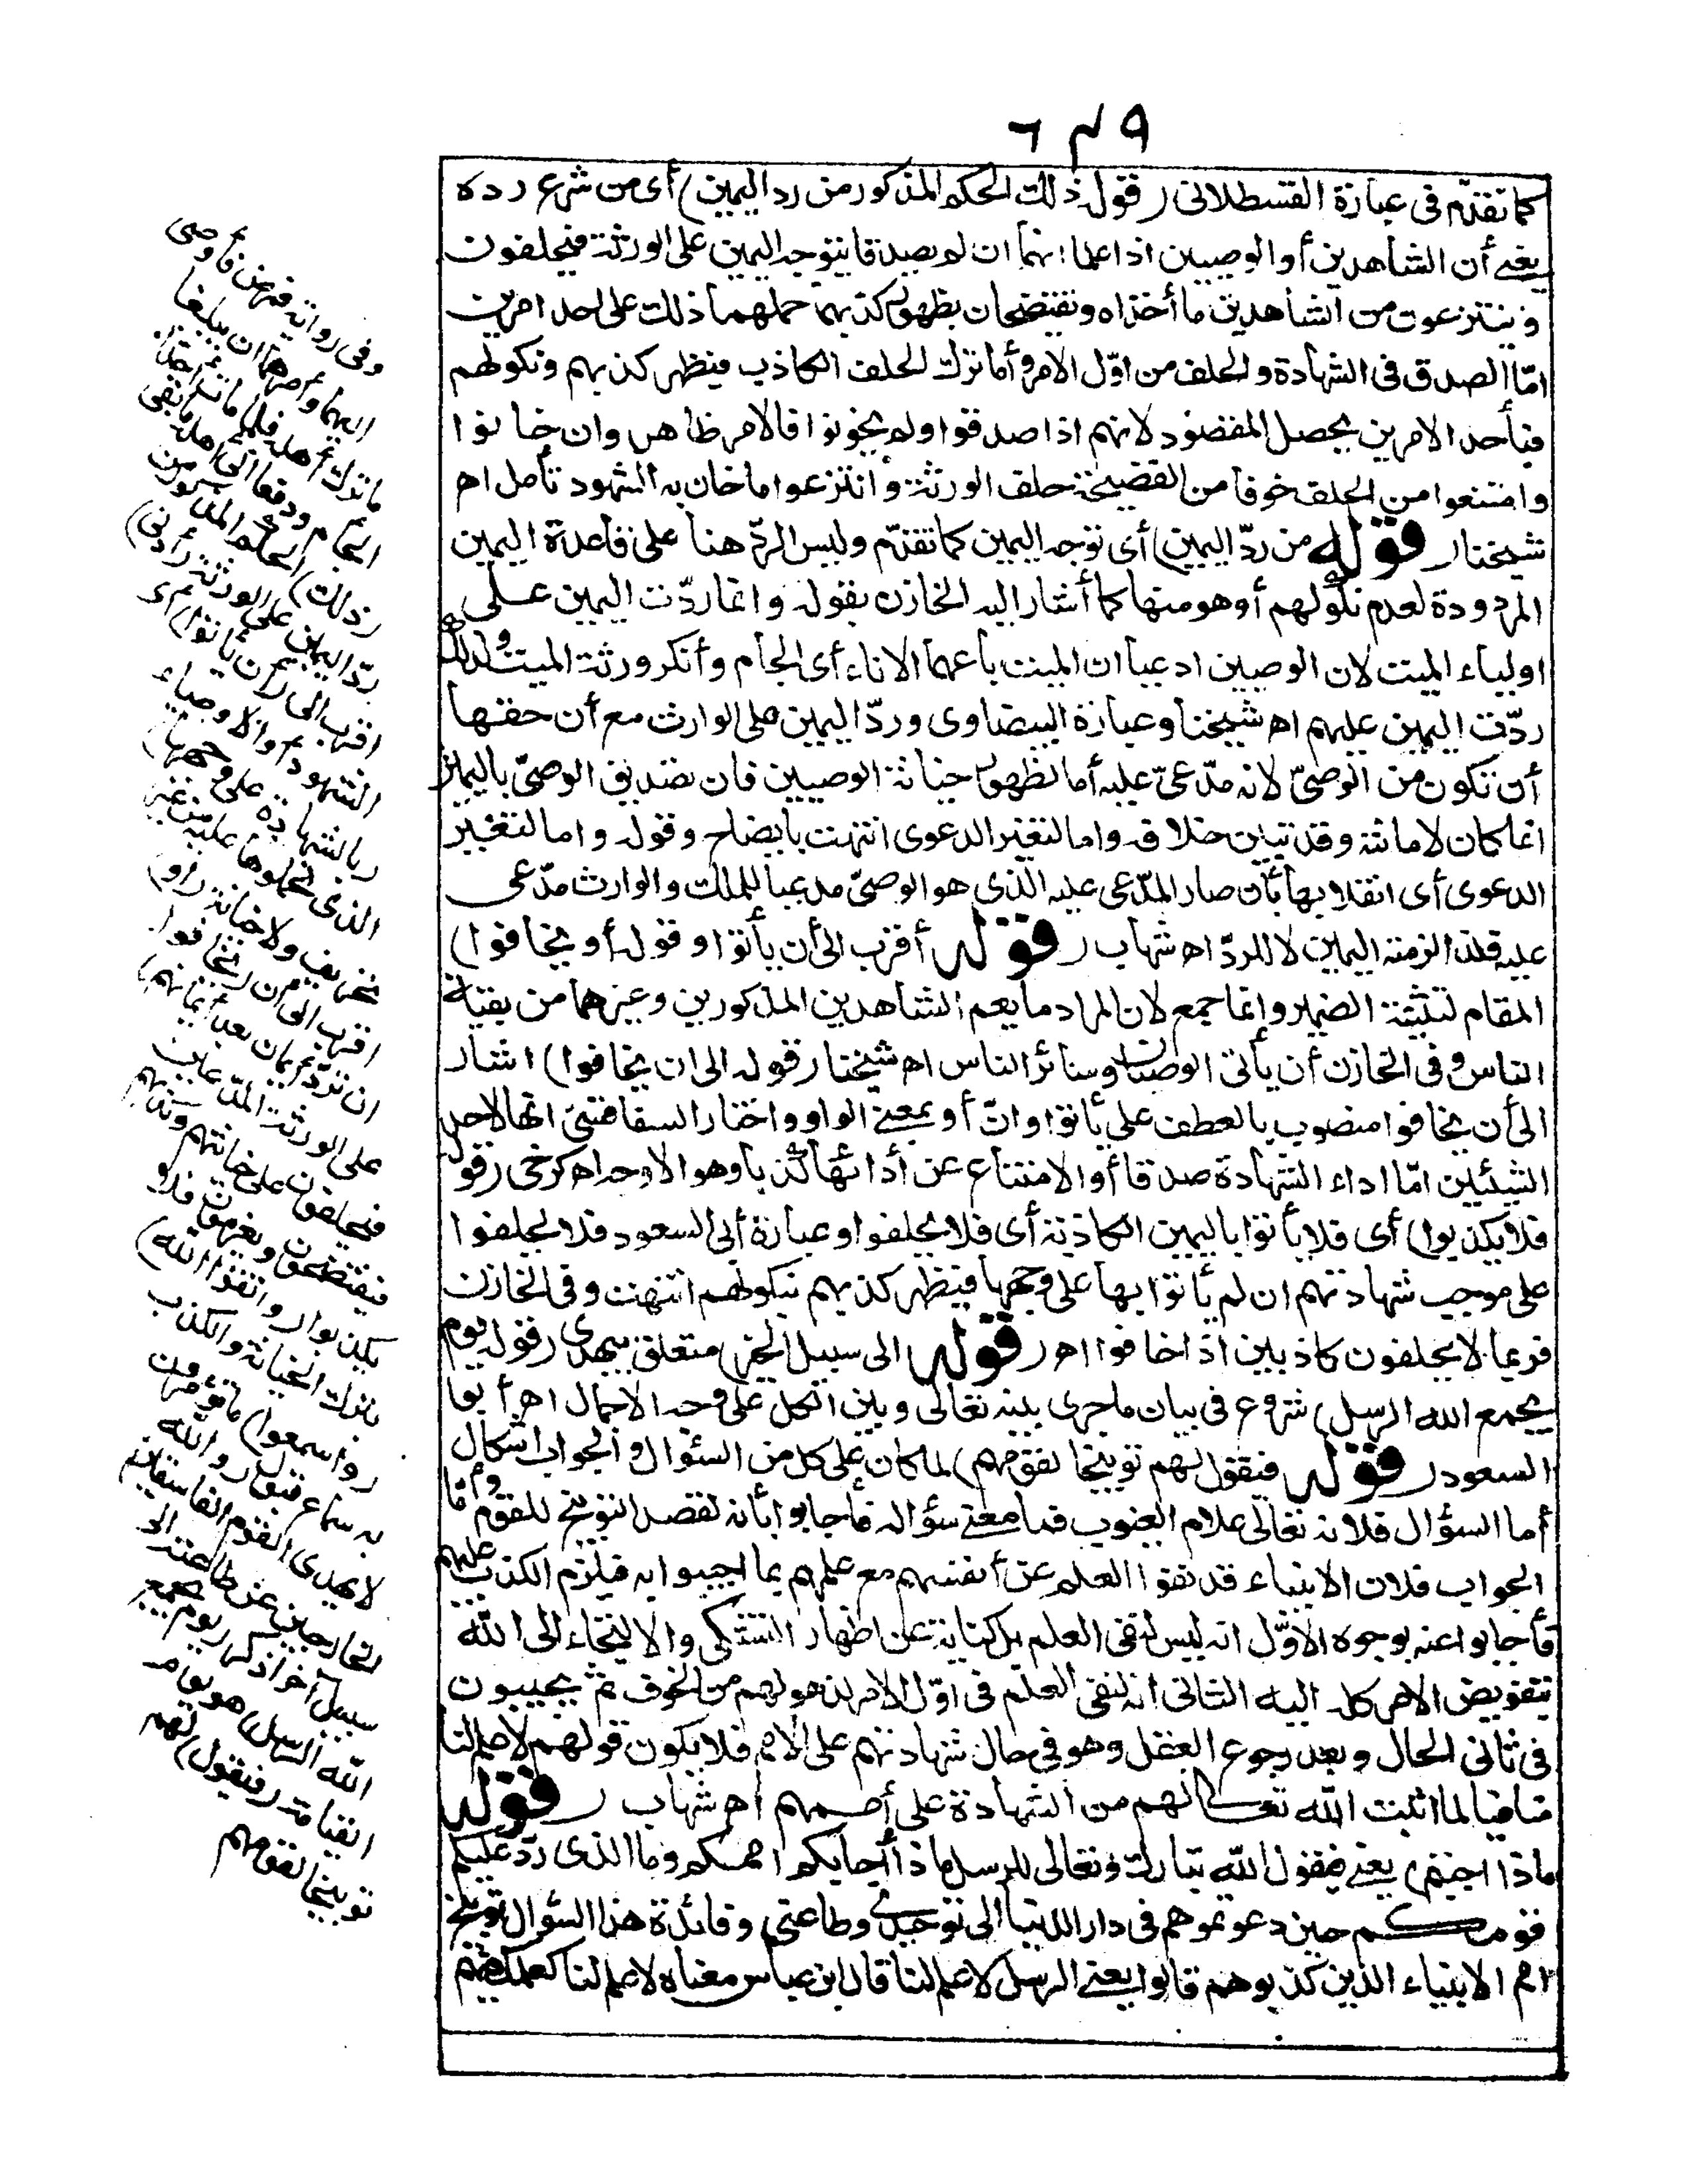 ٦٣٩
كما تقدّم فى عبارة القسطلانى (قوله ذلك الحكم المذكور من رد اليمين) أى من شرع رده
يعنى أن الشاهدين أو الوصيين اذا علما انهما ان لم يصدقا يتوجه اليمين على الورثة فيحلفون
وينتزعون من الشاهدين ما أخذاه ويفتضحان بظهور كذبهما حملهما ذلك على احد امرين
امّا الصدق فى الشهادة والحلف من اوّل الامر وأما ترك الحلف الكاذب فيظهر كذبهم ونكولهم
فبأحد الامرين يحصل المقصود لانهم اذا صدقوا ولم يخونوا فالامر ظاهر وان خانوا
وامتنعوا من الحلف خوفا من الفضيحة حلف الورثة وانتزعوا ما خان به الشهود تأمل اه
شيخنا (قوله من ردّ اليمين) أى توجه اليمين كما تقدّم وليس الردّ هنا على قاعدة اليمين
المردودة لعدم نكولهم أو هو منها كما أشار اليه الخازن بقوله وانما ردّت اليمين على
اولياء الميت لان الوصيين ادعيا ان الميت باعهما الاناء أى الجام وأنكر ورثة الميت ولذلك
ردّت اليمين عليهم اه شيخنا وعبارة البيضاوى وردّ اليمين على الوارث مع أن حقها
أن تكون من الوصىّ لانه مدّعىّ عليه أما لظهور خيانة الوصيين فان تصديق الوصىّ باليمين
انما كان لامانته وقد تبين خلافه واما لتغير الدعوى انتهت بايضاح وقوله واما لتغير
الدعوى أى انقلابها بأن صار المدّعى عليه الذى هو الوصىّ مدعيا للملك والوارث مدّعى
عليه فلذا لزمته اليمين لا للردّ اه شهاب (قوله أقرب الى أن يأتوا وقوله أو يخافوا)
المقام لتثنية الضمير وانما جمع لان المراد ما يعم الشاهدين المذكورين وغيرهما من بقية
الناس وفى الخازن أن يأتى الوصيان وسائر الناس اه شيخنا (قوله الى ان يخافوا) اشار
الى أن يخافوا منصوب بالعطف على يأتوا وانّ أو بمعنى الواو واختار السفاقسىّ انها لاحد
الشيئين امّا اداء الشهادة صدقا أو الامتناع عن أدائها كذبا وهو الاوجه اه كرخى (قوله
فلا يكذبوا) أى فلا يأتوا باليمين الكاذبة أى فلا يحلفوا وعبارة أبى السعود فلا يحلفوا
على موجب شهادتهم ان لم يأتوا بها على وجهها فيظهر كذبهم بنكولهم انتهت وفى الخازن
فربما لا يحلفون كاذبين اذا خافوا اه (قوله الى سبيل الخير) متعلق بيهدى (قوله يوم
يجمع الله الرسل) شروع فى بيان ما جرى بينه تعالى وبين الكل على وجه الاجمال اه أبوا
السعود (قوله فيقول لهم توبيخا لقومهم) لما كان على كل من السؤال والجواب اشكال
أما السؤال فلانه تعالى علام الغيوب فما معنى سؤاله فأجابوا بأنه لقصد التوبيخ للقوم وأما
الجواب فلان الانبياء قد نفوا العلم عن أنفسهم مع علمهم بما اجيبوا به فيلزم الكذب عليهم
فأجابوا عنه بوجوه الاوّل انه ليس لنفى العلم بل كناية عن اظهار التشكى والالتجاء الى الله
بتفويض الامر كله اليه الثانى انه لنفى العلم فى اوّل الامر لذهولهم من الخوف ثم يجيبون
فى ثانى الحال وبعد رجوع العقل وهو فى حال شهادتهم على الامم فلا يكون قولهم لا علم لنا
منافيا لما اثبت الله تعالى لهم من الشهادة على أممهم اه شهاب (قوله
ماذا اجبتم) يعنى فيقول الله تبارك وتعالى للرسل ماذا أجابكم اممكم وما الذى ردّ عليكم
قومكم حين دعوتموهم فى دار الدنيا الى توحيدى وطاعتى وفائدة هذا السؤال توبيخ
امم الانبياء الذين كذبوهم قالوا يعنى الرسل لا علم لنا قال ابن عباس معناه لا علم لنا كعلمك فيهم
وفى رواية فمرض فأوصى
اليهما وأمرهما ان يبلغا
ما ترك أهله فلما مات أخذا
الجام ودفعا الى اهله ما بقى
(ذلك) الحكم المذكور من
ردّ اليمين على الورثة (أدنى)
اقرب الى (أن يأتوا) أى
الشهود أو الاوصياء
(بالشهادة على وجهها)
الذى تحملوها عليه من غير
تحريف ولا خيانة (أو)
اقرب الى ان (يخافوا
ان تردّ أيمان بعد أيمانهم)
على الورثة المدّعين
فيحلفون على خيانتهم وكذبهم
فيفتضحون ويغرمون فلا
يكذبوا (واتقوا الله)
بترك الخيانة والكذب
(واسمعوا) ما تؤمرون
به سماع قبول (والله
لا يهدى القوم الفاسقين)
الخارجين عن طاعته الى
سبيل الخير اذكر (يوم يجمع
الله الرسل) هو يوم
القيامة (فيقول) لهم
توبيخا لقومهم